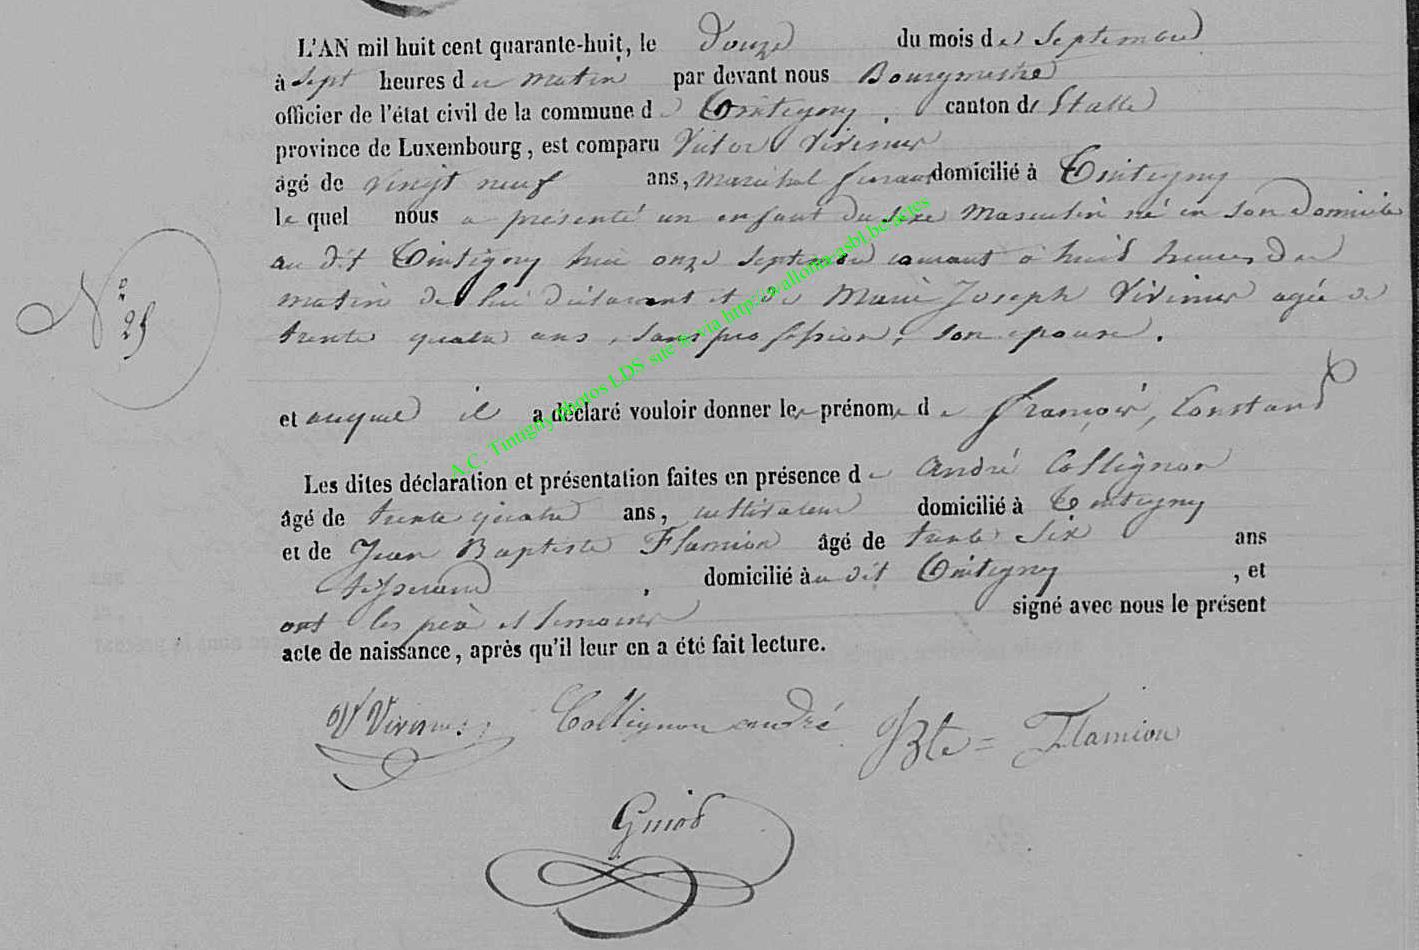 L'AN mil huit cent quarante-huit, le Douze du mois de Septembre
à Sept heures du matin par devant nous Bourgmestre
officier de l'état civil de la commune de Tintigny, canton de Etalle
province de Luxembourg, est comparu Victor Vivinus
âgé de vingt neuf ans, maréchal ferrant domicilié à Tintigny
le quel nous a présenté un enfant du sexe masculin né en son domicile
au dit Tintigny hier onze Septembre courant à huit heures du
matin de lui déclarant et de Marie Joseph Vivinus agée de
trente quatre ans, sans profession, son épouse.
N° 25
et auquel il a déclaré vouloir donner les prénoms de François, Constant
Les dites déclaration et présentation faites en présence de André Collignon
âgé de trente quatre ans, cultivateur domicilié à Tintigny
et de Jean Baptiste Flamion âgé de trente six ans
, domicilié à au dit Tintigny, et
ont les père et témoins signé avec nous le présent
acte de naissance, après qu'il leur en a été fait lecture.
V Vivinus Collignon andré Bte = Flamion
Guiot
A.C. Tintigny Photos LDS site & via http://wallonia-asbl.be/actes